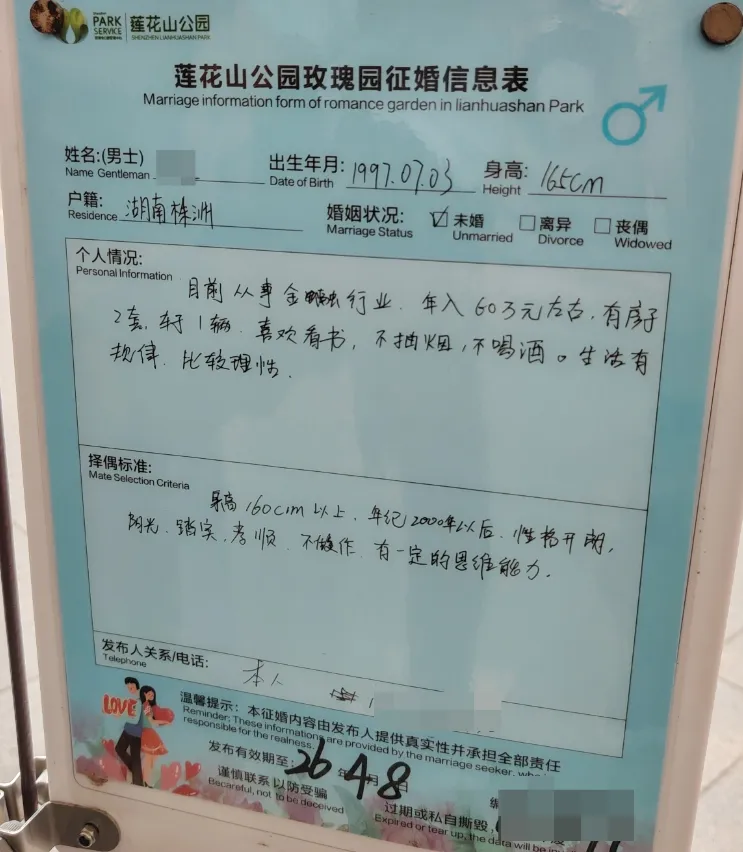 PARK SERVICE 莲花山公园
SHENZHEN LIANHUASHAN PARK
莲花山公园玫瑰园征婚信息表
Marriage information form of romance garden in lianhuashan Park
姓名:(男士) 出生年月: 1997.07.03 身高: 165cm
Name Gentleman Date of Birth Height
户籍: 湖南株洲 婚姻状况: ☑未婚 □离异 □丧偶
Residence Marriage Status Unmarried Divorce Widowed
个人情况:
Personal Information
目前从事金融行业、年入60万元左右,有房子
2套,车子1辆、喜欢看书,不抽烟,不喝酒。生活有
规律、比较理性.
择偶标准:
Mate Selection Criteria
身高160cm以上、年纪2000年以后、性格开朗,
阳光、踏实、孝顺、不做作、有一定的思维能力.
发布人关系/电话: 本人
Telephone
LOVE
温馨提示: 本征婚内容由发布人提供真实性并承担全部责任
Reminder: These informations are provided by the marriage seeker,
responsible for the realness.
发布有效期至: 26年4月8日
谨慎联系 以防受骗
Becareful, not to be deceived
过期或私自撕毁,
Expired or tear up, the data will be